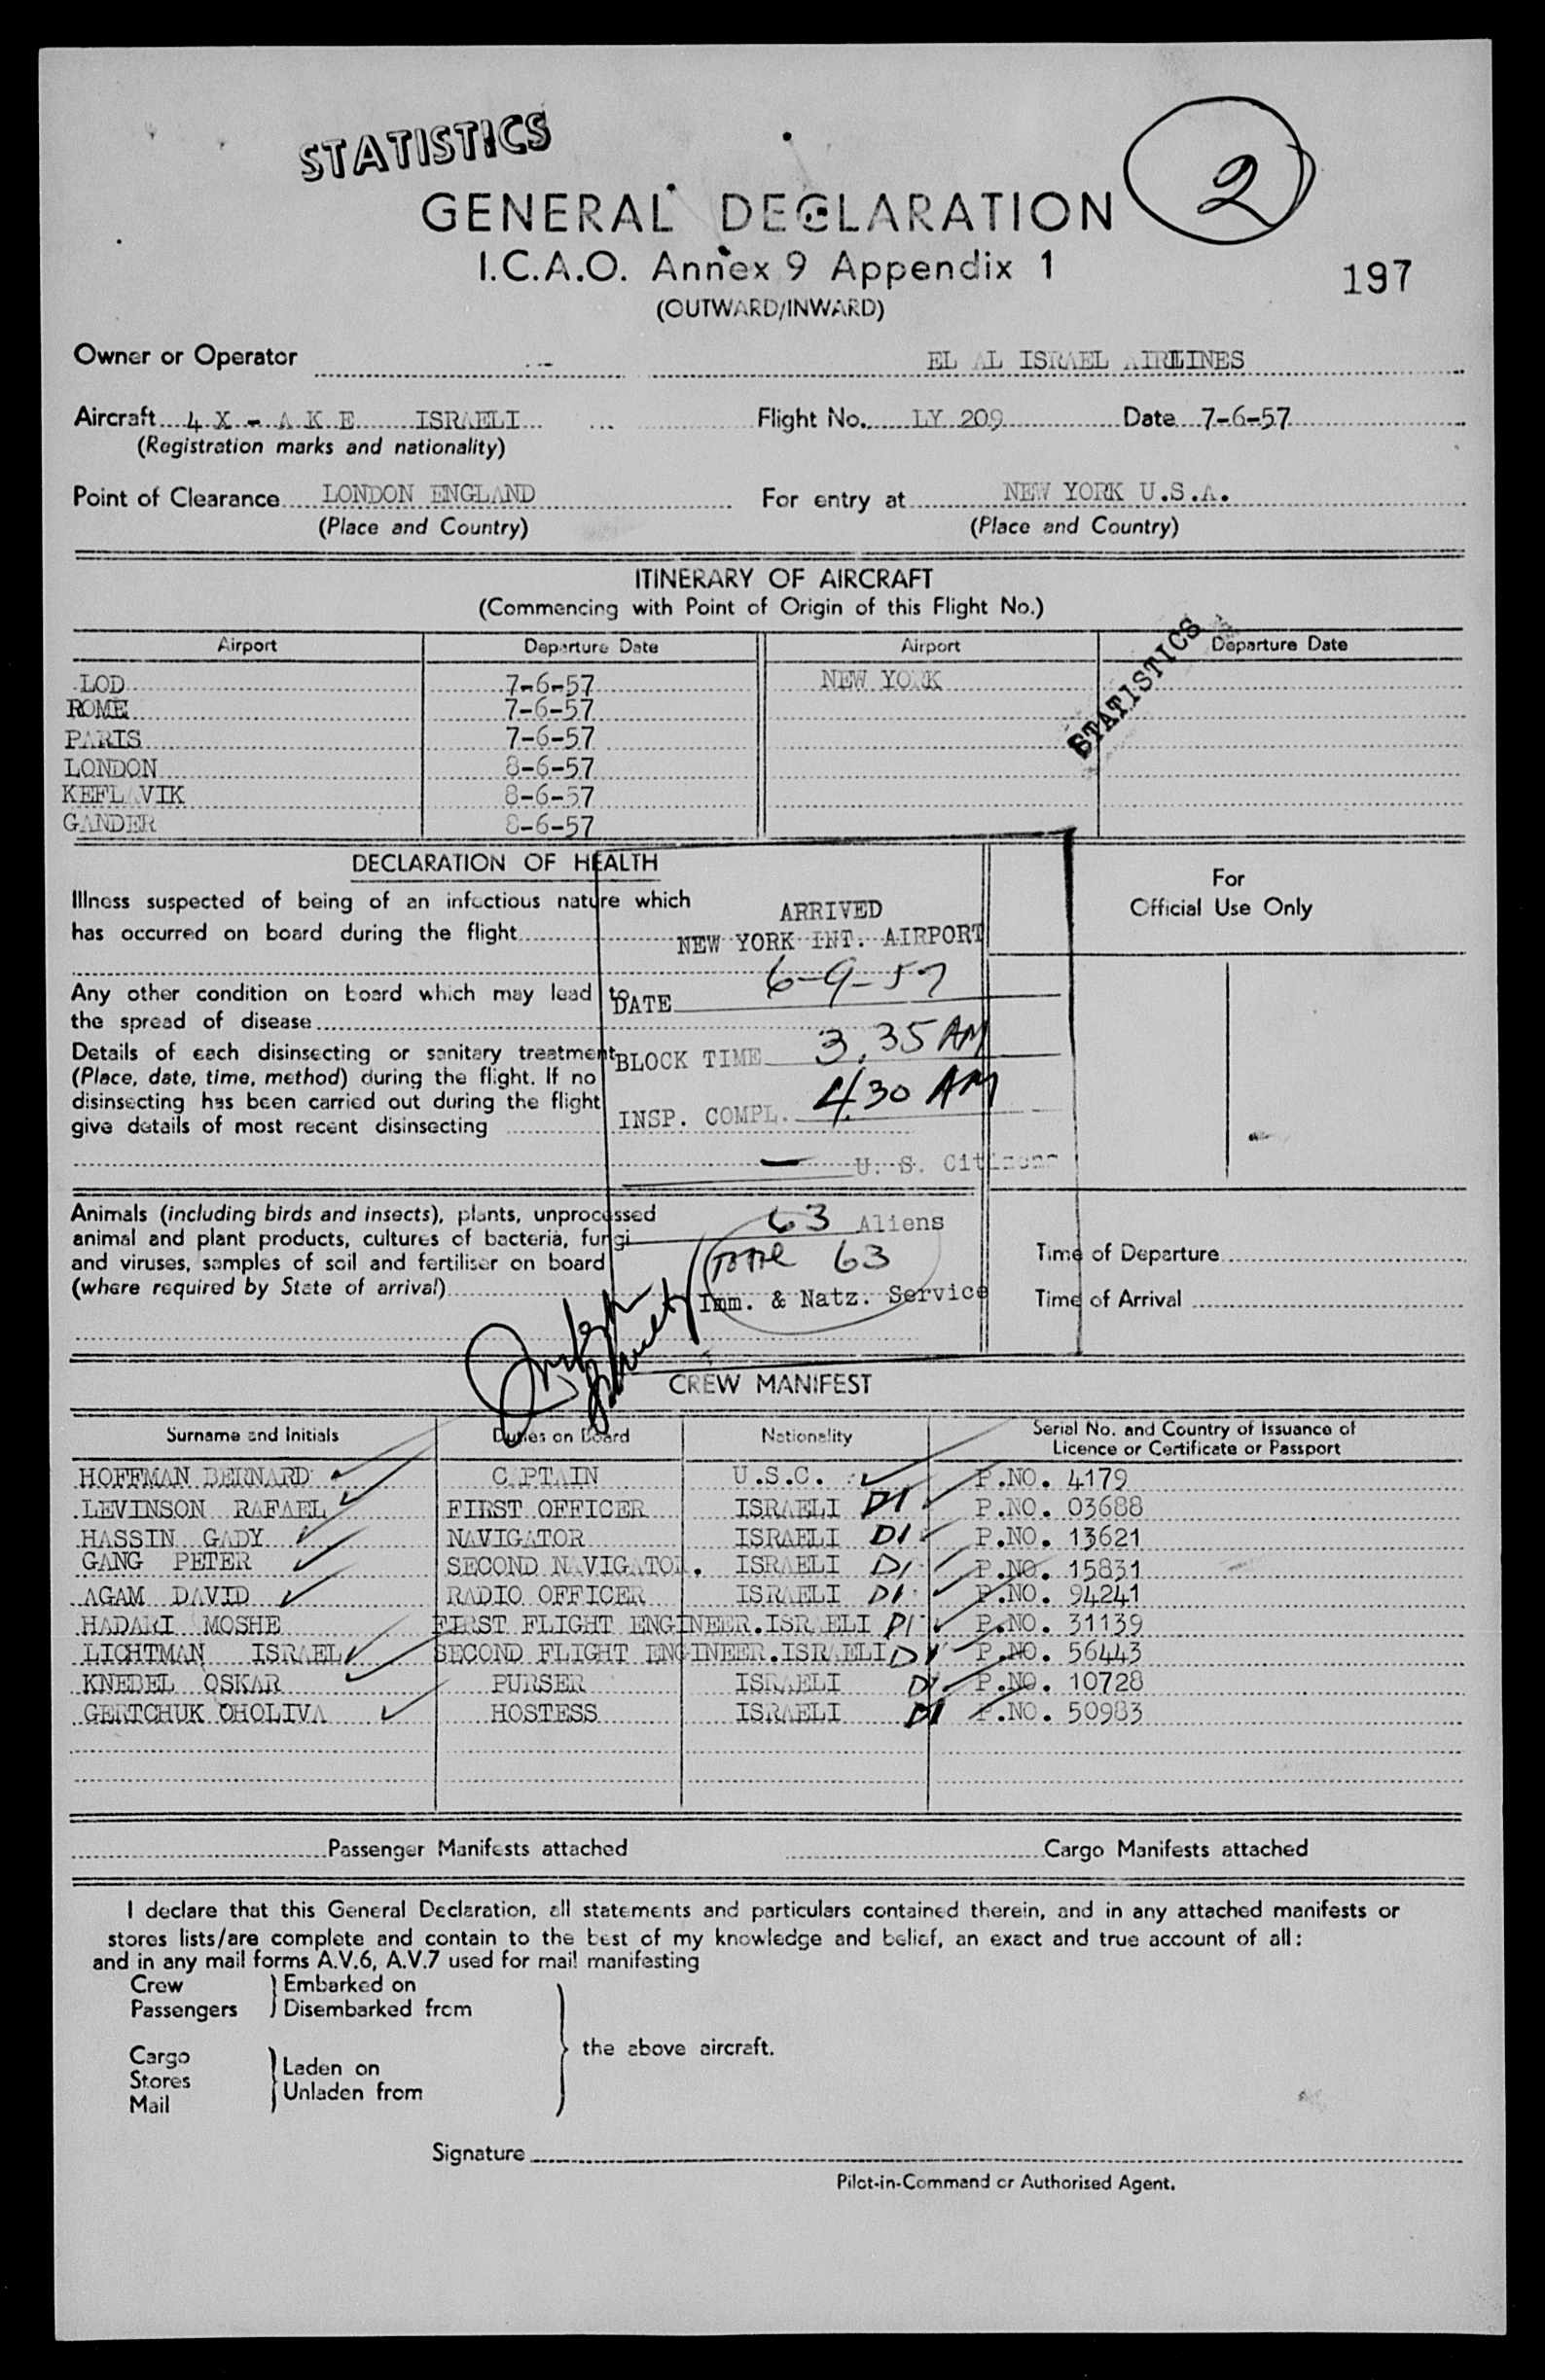 STATISTICS
2
GENERAL DECLARATION
I.C.A.O. Annex 9 Appendix 1
197
(OUTWARD/INWARD)
Owner or Operator EL AL ISRAEL AIRLINES
Aircraft 4 X - A K E ISRAELI Flight No. LY 209 Date 7-6-57
(Registration marks and nationality)
Point of Clearance LONDON ENGLAND For entry at NEW YORK U.S.A.
(Place and Country) (Place and Country)
ITINERARY OF AIRCRAFT
(Commencing with Point of Origin of this Flight No.)
Airport Departure Date Airport Departure Date
STATISTICS
LOD 7-6-57 NEW YORK
ROME 7-6-57
PARIS 7-6-57
LONDON 8-6-57
KEFLAVIK 8-6-57
GANDER 8-6-57
DECLARATION OF HEALTH
Illness suspected of being of an infectious nature which
has occurred on board during the flight
Any other condition on board which may lead to
the spread of disease
Details of each disinsecting or sanitary treatment
(Place, date, time, method) during the flight. If no
disinsecting has been carried out during the flight
give details of most recent disinsecting
ARRIVED
NEW YORK INT. AIRPORT
DATE 6-9-57
BLOCK TIME 3.35 AM
INSP. COMPL. 4.30 AM
— U. S. Citizens
63 Aliens
Total 63
Imm. & Natz. Service
For
Official Use Only
Animals (including birds and insects), plants, unprocessed
animal and plant products, cultures of bacteria, fungi
and viruses, samples of soil and fertiliser on board
(where required by State of arrival)
Time of Departure
Time of Arrival
CREW MANIFEST
Surname and Initials Duties on Board Nationality Serial No. and Country of Issuance of
Licence or Certificate or Passport
HOFFMAN BERNARD CAPTAIN U.S.C. P.NO. 4179
LEVINSON RAFAEL FIRST OFFICER ISRAELI D1 P.NO. 03688
HASSIN GADY NAVIGATOR ISRAELI D1 P.NO. 13621
GANG PETER SECOND NAVIGATOR. ISRAELI D1 P.NO. 15831
AGAM DAVID RADIO OFFICER ISRAELI D1 P.NO. 94241
HADARI MOSHE FIRST FLIGHT ENGINEER. ISRAELI D1 P.NO. 31139
LICHTMAN ISRAEL SECOND FLIGHT ENGINEER. ISRAELI D1 P.NO. 56443
KNEBEL OSKAR PURSER ISRAELI D1 P.NO. 10728
GERTCHUK OHOLIVA HOSTESS ISRAELI D1 P.NO. 50983
Passenger Manifests attached Cargo Manifests attached
I declare that this General Declaration, all statements and particulars contained therein, and in any attached manifests or
stores lists/are complete and contain to the best of my knowledge and belief, an exact and true account of all:
and in any mail forms A.V.6, A.V.7 used for mail manifesting
Crew } Embarked on
Passengers } Disembarked from
the above aircraft.
Cargo
Stores
Mail
Laden on
Unladen from
Signature
Pilot-in-Command or Authorised Agent.